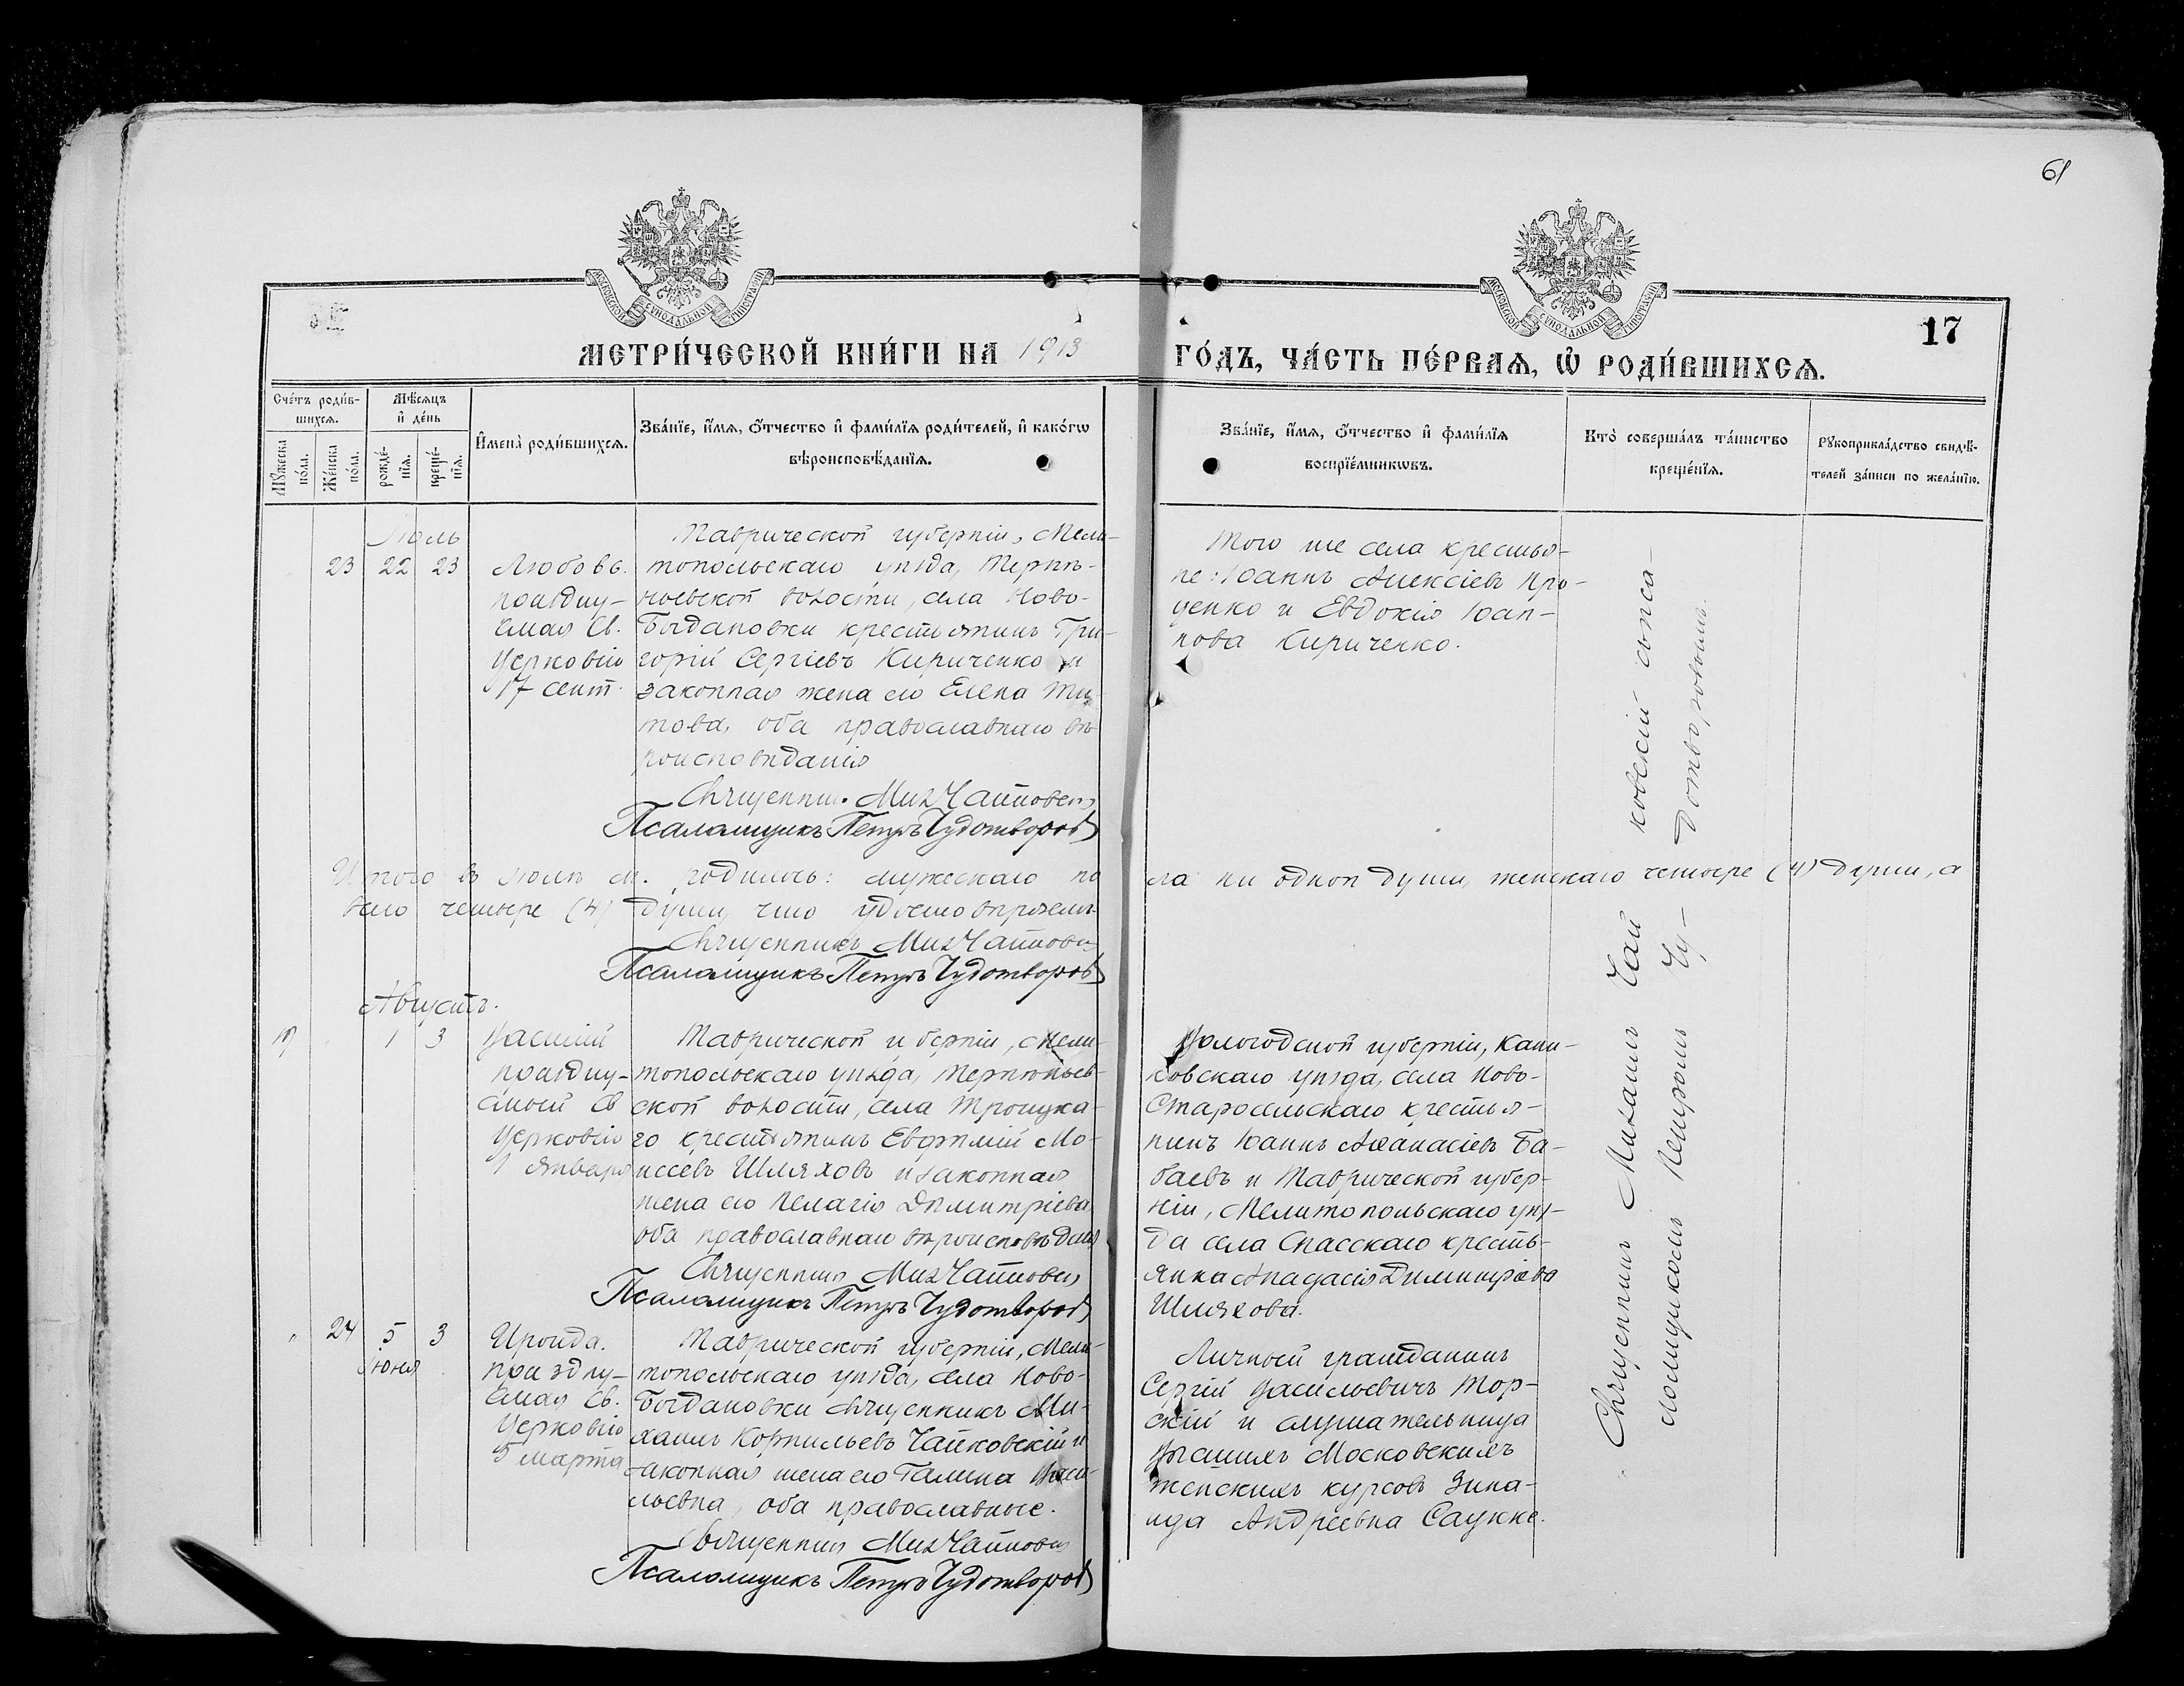 61
МОСКОВСКОЙ СѴНОДАЛЬНОЙ ТИПОГРАФІИ
МОСКОВСКОЙ СѴНОДАЛЬНОЙ ТИПОГРАФІИ
17
МЕТРИ́ЧЕСКОЙ КНИ́ГИ НА 1913 ГО́ДЪ, ЧА́СТЬ ПЕ́РВАѦ, Ѡ҆ РОДИ́ВШИХСѦ.
Сче́тъ роди́в-
шихсѧ.
Мꙋ́жеска
по́ла.
Же́нска
по́ла.
Мѣ́сѧцъ
и҆ де́нь
рожде́-
нїѧ.
креще́-
нїѧ.
И҆мена̀ роди́вшихсѧ.
Зва́нїе, и҆́мѧ, ѻ҆́тчество и҆ фами́лїѧ роди́телей, и҆ како́гѡ
вѣроисповѣ́данїѧ.
Зва́нїе, и҆́мѧ, ѻ҆́тчество и҆ фами́лїѧ
воспрїе́мникѡвъ.
Кто̀ соверша́лъ та́инство
креще́нїѧ.
Рꙋкоприкла́дство свидѣ́-
телей за́писи по жела́нїю.
Іюль
23 22 23
Любовь.
празdну-
емая Св.
Церковію
17 сент.
Таврической губерніи, Мели-
топольскаго уѣзда, Терпѣ-
ньевской волости, села Ново-
Богдановки крестьянинъ Гри-
горій Сергіевъ Кириченко и
законная жена его Елена Ти-
това, оба православнаго вѣ-
роисповѣданія
Священникъ Мих Чайковскій
Псаломщикъ Петръ Чудотворовъ
Того же села крестья-
не: Іоаннъ Алексіевъ Про-
ценко и Евдокія Іоан-
нова Кириченко.
Итого въ іюлѣ м. родилось: мужескаго по
ла ни одной души, женскаго четыре (4) души, а
всего четыре (4) души, что удостовѣряемъ
Священникъ Мих Чайковскій
Псаломщикъ Петръ Чудотворовъ
Августъ.
19 1 3
Василій
праздну-
емый Св
Церковію
1 января
Таврической губерніи, Мели-
топольскаго уѣзда, Терпѣньев-
ской волости, села Троицка-
го крестьянинъ Евфимій Мо-
исеевъ Шляховъ и законная
жена его Пелагія Димитріева
оба православнаго вѣроисповѣданія
Священникъ Мих Чайковскій
Псаломщикъ Петръ Чудотворовъ
Вологодской губерніи, Кани-
ковскаго уѣзда, села Ново-
Старосельскаго крестья-
нинъ Іоаннъ Аѳанасіевъ Ба-
баевъ и Таврической губер-
ніи, Мелитопольскаго уѣз-
да села Спасскаго кресть-
янка Анастасія Димитріева
Шляхова.
24 5 3
Іюня
Ираида.
праздну-
емая Св.
Церковію
5 марта
Таврической губерніи, Мели-
топольскаго уѣзда, села Ново-
Богдановки священникъ Ми-
хаилъ Корнильевъ Чайковскій и
законная жена его Галина Васи-
льевна, оба православные.
Священникъ Мих Чайковскій
Псаломщикъ Петръ Чудотворовъ
Личный гражданинъ
Сергій Васильевичъ Тор-
скій и слушательница
Высшихъ Московскихъ
женскихъ курсовъ Зина-
ида Андреевна Саукке.
Священникъ Михаилъ Чайковскій съ пса-
ломщикомъ Петромъ Чудотворовымъ.